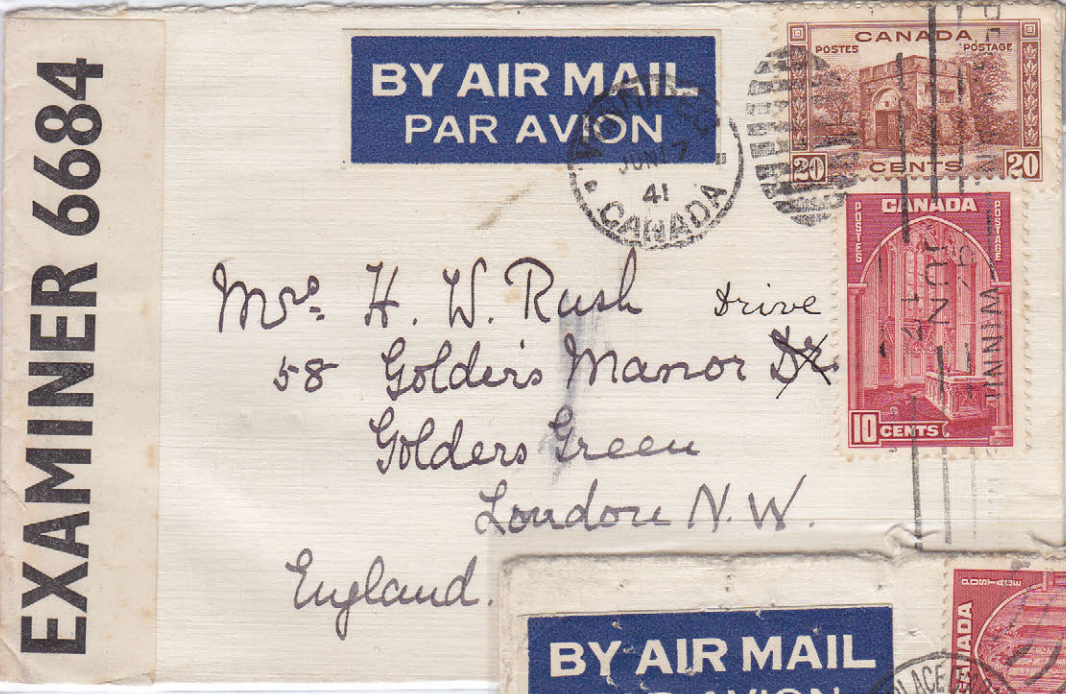 EXAMINER 6684
BY AIR MAIL
PAR AVION
WINNIPEG
JUN 17
41
CANADA
CANADA
POSTES POSTAGE
20 CENTS 20
CANADA
POSTES POSTAGE
10 CENTS
JUN
Mrs. H. W. Rush
Drive
58 Golders Manor Dr.
Golders Green
London N.W.
England.
BY AIR MAIL
PAR AVION
POSTAGE
CANADA
PLACE